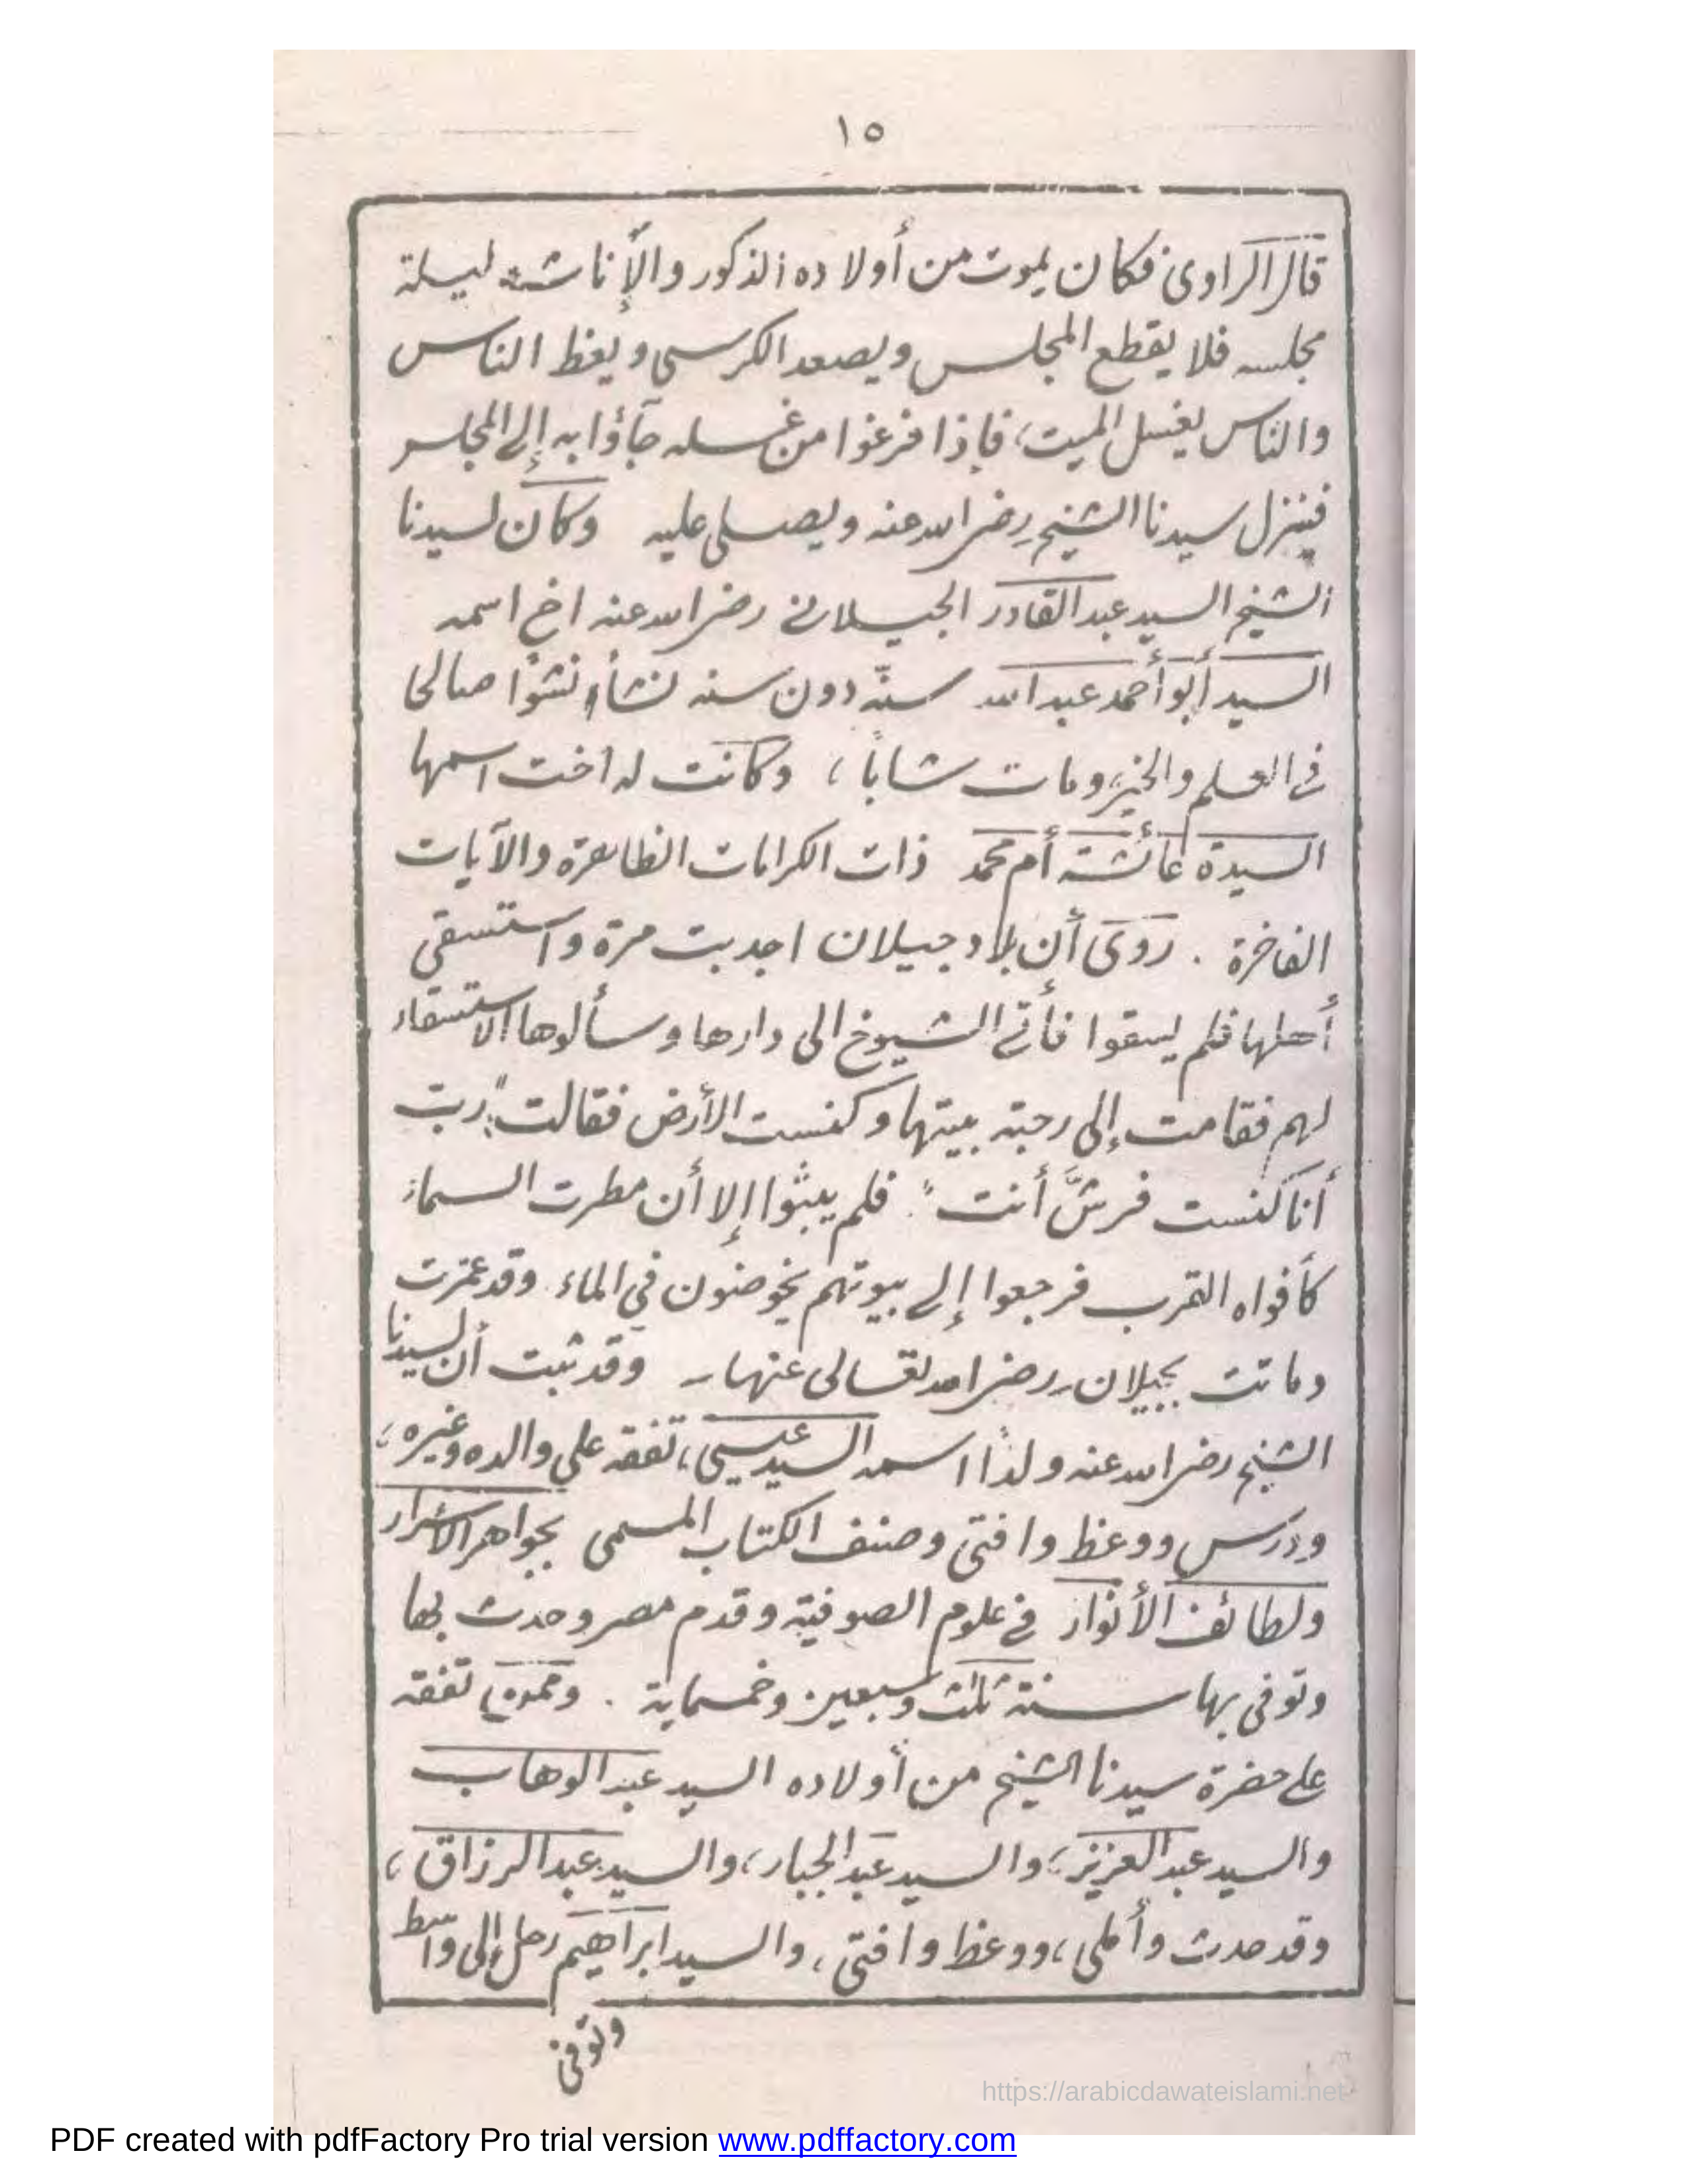 ١٥
قال الراوى فكان يموت من أولاده الذكور والإناث ليلة
مجلسه فلا يقطع المجلس ويصعد الكرسى ويعظ الناس
والناس يغسل الميت، فإذا فرغوا من غسله جآؤا به إلى المجلس
فينزل سيدنا الشيخ رضى الله عنه ويصلى عليه وكان لسيدنا
الشيخ السيد عبد القادر الجيلانى رضى الله عنه اخ اسمه
السيد أبو أحمد عبد الله سنّه دون سنه نشأ نشؤا صالحا
فى العلم والخير ومات شابا، وكانت له اخت اسمها
السيدة عائشة أم محمد ذات الكرامات الظاهرة والآيات
الفاخرة . روى أن بلاد جيلان اجدبت مرة واستسقى
أهلها فلم يسقوا فأتى الشيوخ الى دارها وسألوها الاستسقاء
لهم فقامت إلى رحبة بيتها وكنست الأرض فقالت "رب
أنا كنست فرشَّ أنت". فلم يبثوا إلا أن مطرت السماء
كأفواه القرب فرجعوا إلى بيوتهم يخوضون في الماء. وقد عمرت
وماتت بجيلان - رضى الله تعالى عنها - وقد ثبت أن لسيدنا
الشيخ رضى الله عنه ولدًا اسمه السيد عيسى، تفقه على والده وغيره،
ودرس ووعظ وافتى وصنف الكتاب المسمى بجواهر الأسرار
ولطائف الأنوار فى علوم الصوفية وقدم مصر وحدث بها
وتوفى بها سنة ثلث وسبعين وخمسماية . وممن تفقه
على حضرة سيدنا الشيخ من أولاده السيد عبد الوهاب
والسيد عبد العزيز، والسيد عبد الجبار، والسيد عبد الرزاق،
وقد حدث وأملى، ووعظ وافتى، والسيد ابراهيم رحل إلى واسط
وتوفى
https://arabicdawateislami.net
PDF created with pdfFactory Pro trial version www.pdffactory.com